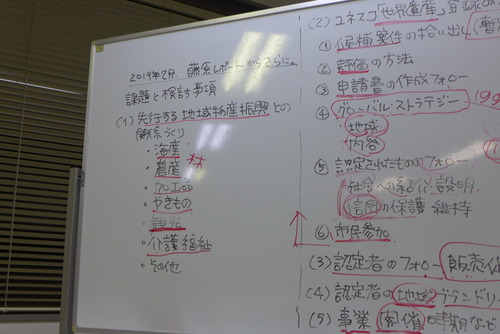 2019年2月. 藤原レポートからさらに。
課題と検討事項
(1) 先行する地域物産振興との
関係づくり
・海産
・農産 林
・加工品
・やきもの
・観光
・介護福祉
・その他
(2) ユネスコ「世界遺産」登録の
① 候補案件の拾い出し (暫
② 評価の方法
③ 申請書の作成フォロー
④ グローバル・ストラテジー 199
・地域
・内容
⑤ 認定されたもののフォロー
社会への紹介, 説明
信用の保護 維持
⑥ 市民参加
(3) 認定者のフォロー 販売促
(4) 認定者の地域ブランドリ
(5) 事業 開催 時期など